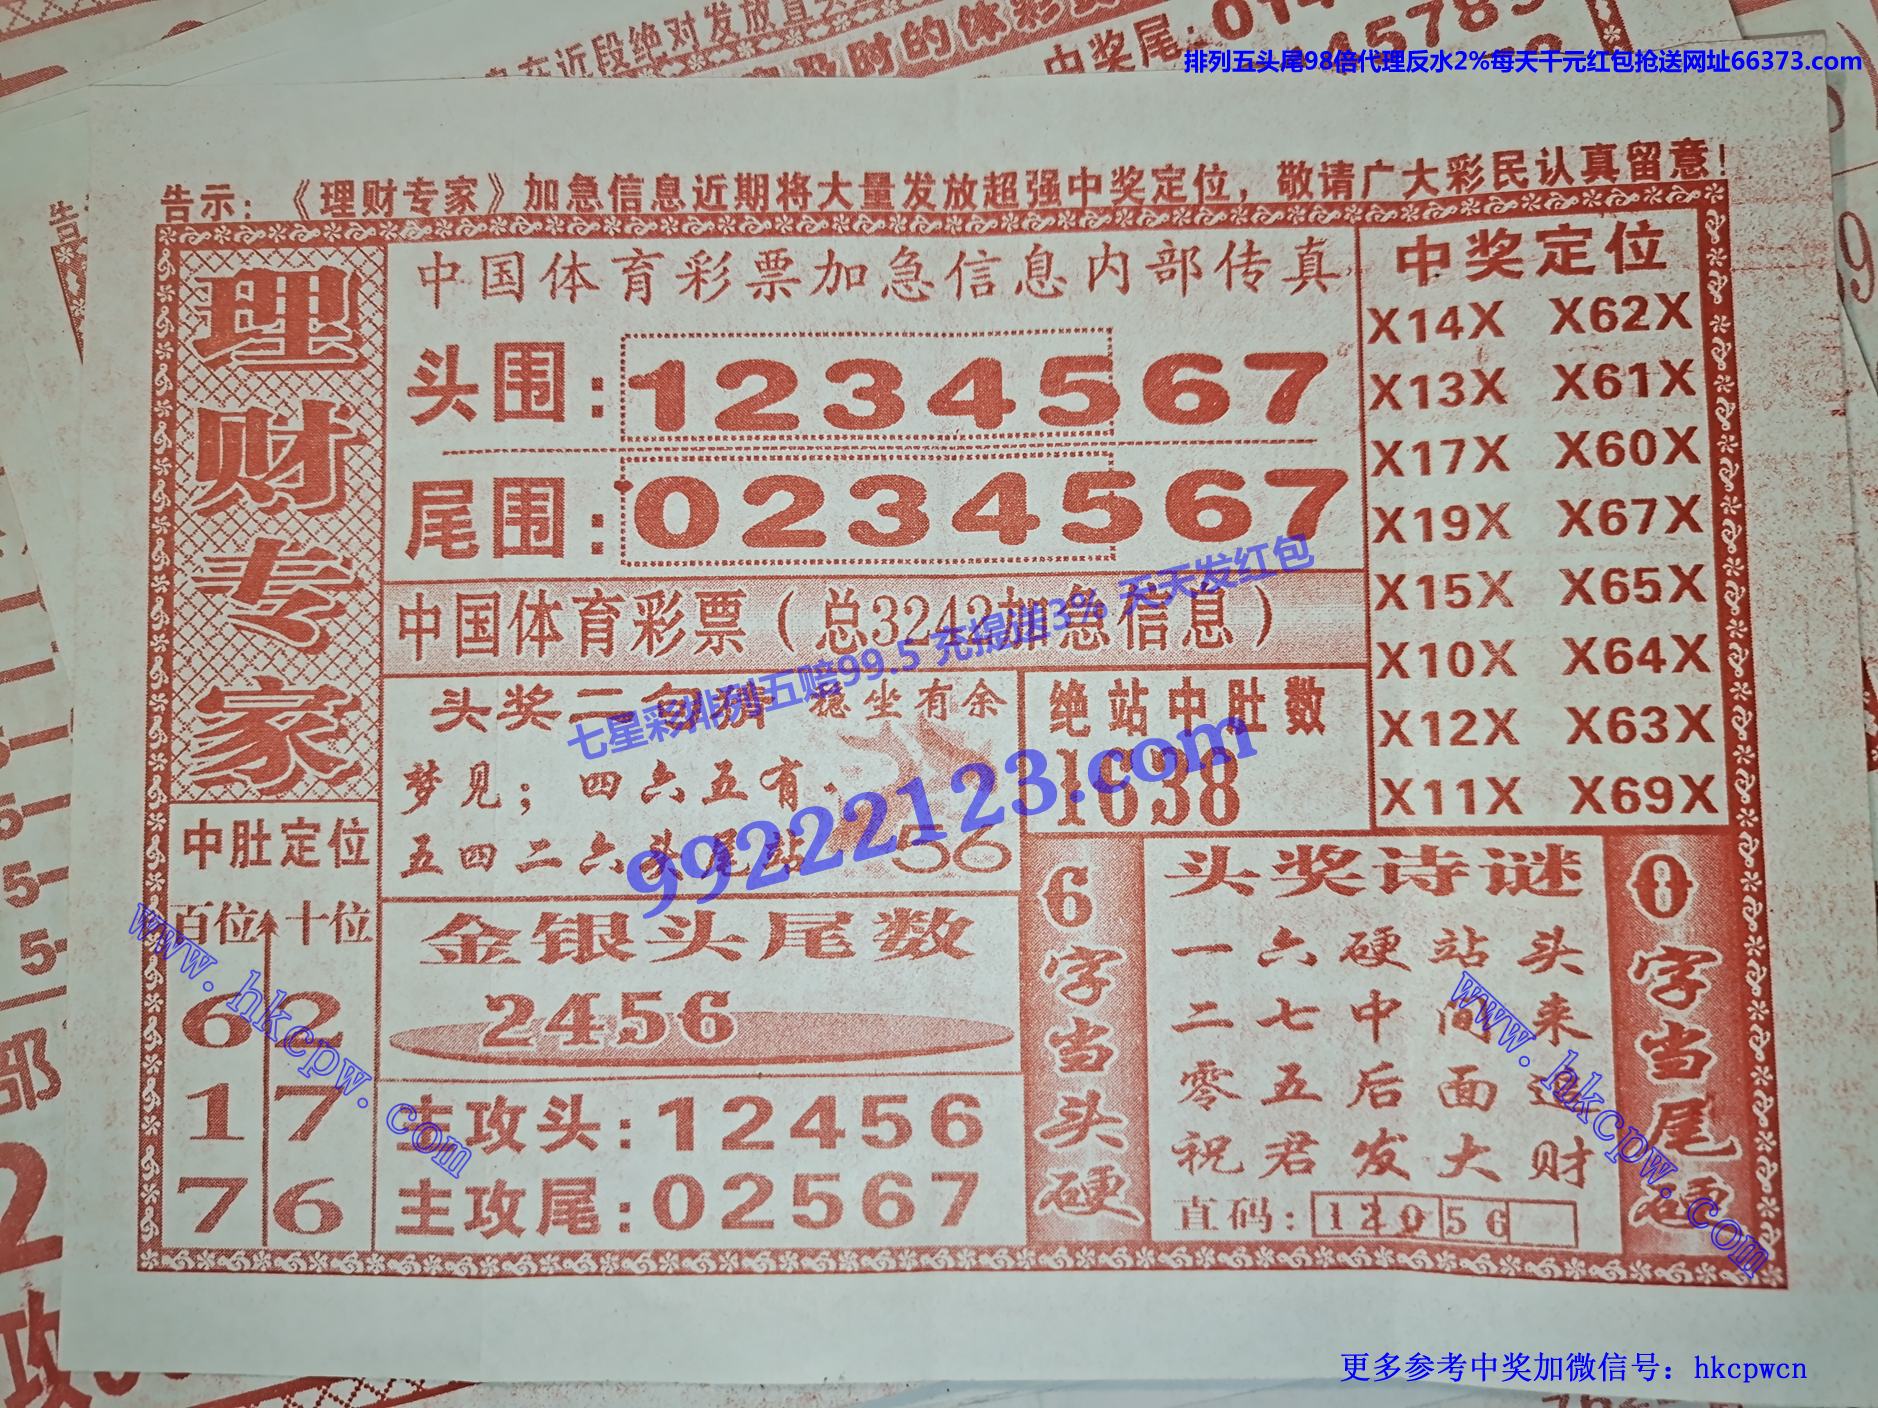 排列五头尾98倍代理反水2%每天千元红包抢送网址66373.com
告示：《理财专家》加急信息近期将大量发放超强中奖定位，敬请广大彩民认真留意！
理财专家
中国体育彩票加急信息内部传真
头围：1234567
尾围：0234567
中国体育彩票（总3242加急信息）
七星彩排列五赔99.5 充提送3% 天天发红包
99222123.com
头奖二句猜 稳坐有余
梦见；四六五有．
五四二六头尾站 56
绝站中肚数
1638
中奖定位
X14X X62X
X13X X61X
X17X X60X
X19X X67X
X15X X65X
X10X X64X
X12X X63X
X11X X69X
中肚定位
百位 十位
6 2
1 7
7 6
www.hkcpw.com
金银头尾数
2456
主攻头：12456
主攻尾：02567
6字当头硬
头奖诗谜
一六硬站头
二七中间来
零五后面
祝君发大财
直码：
0字当尾硬
www.hkcpw.com
更多参考中奖加微信号：hkcpwcn